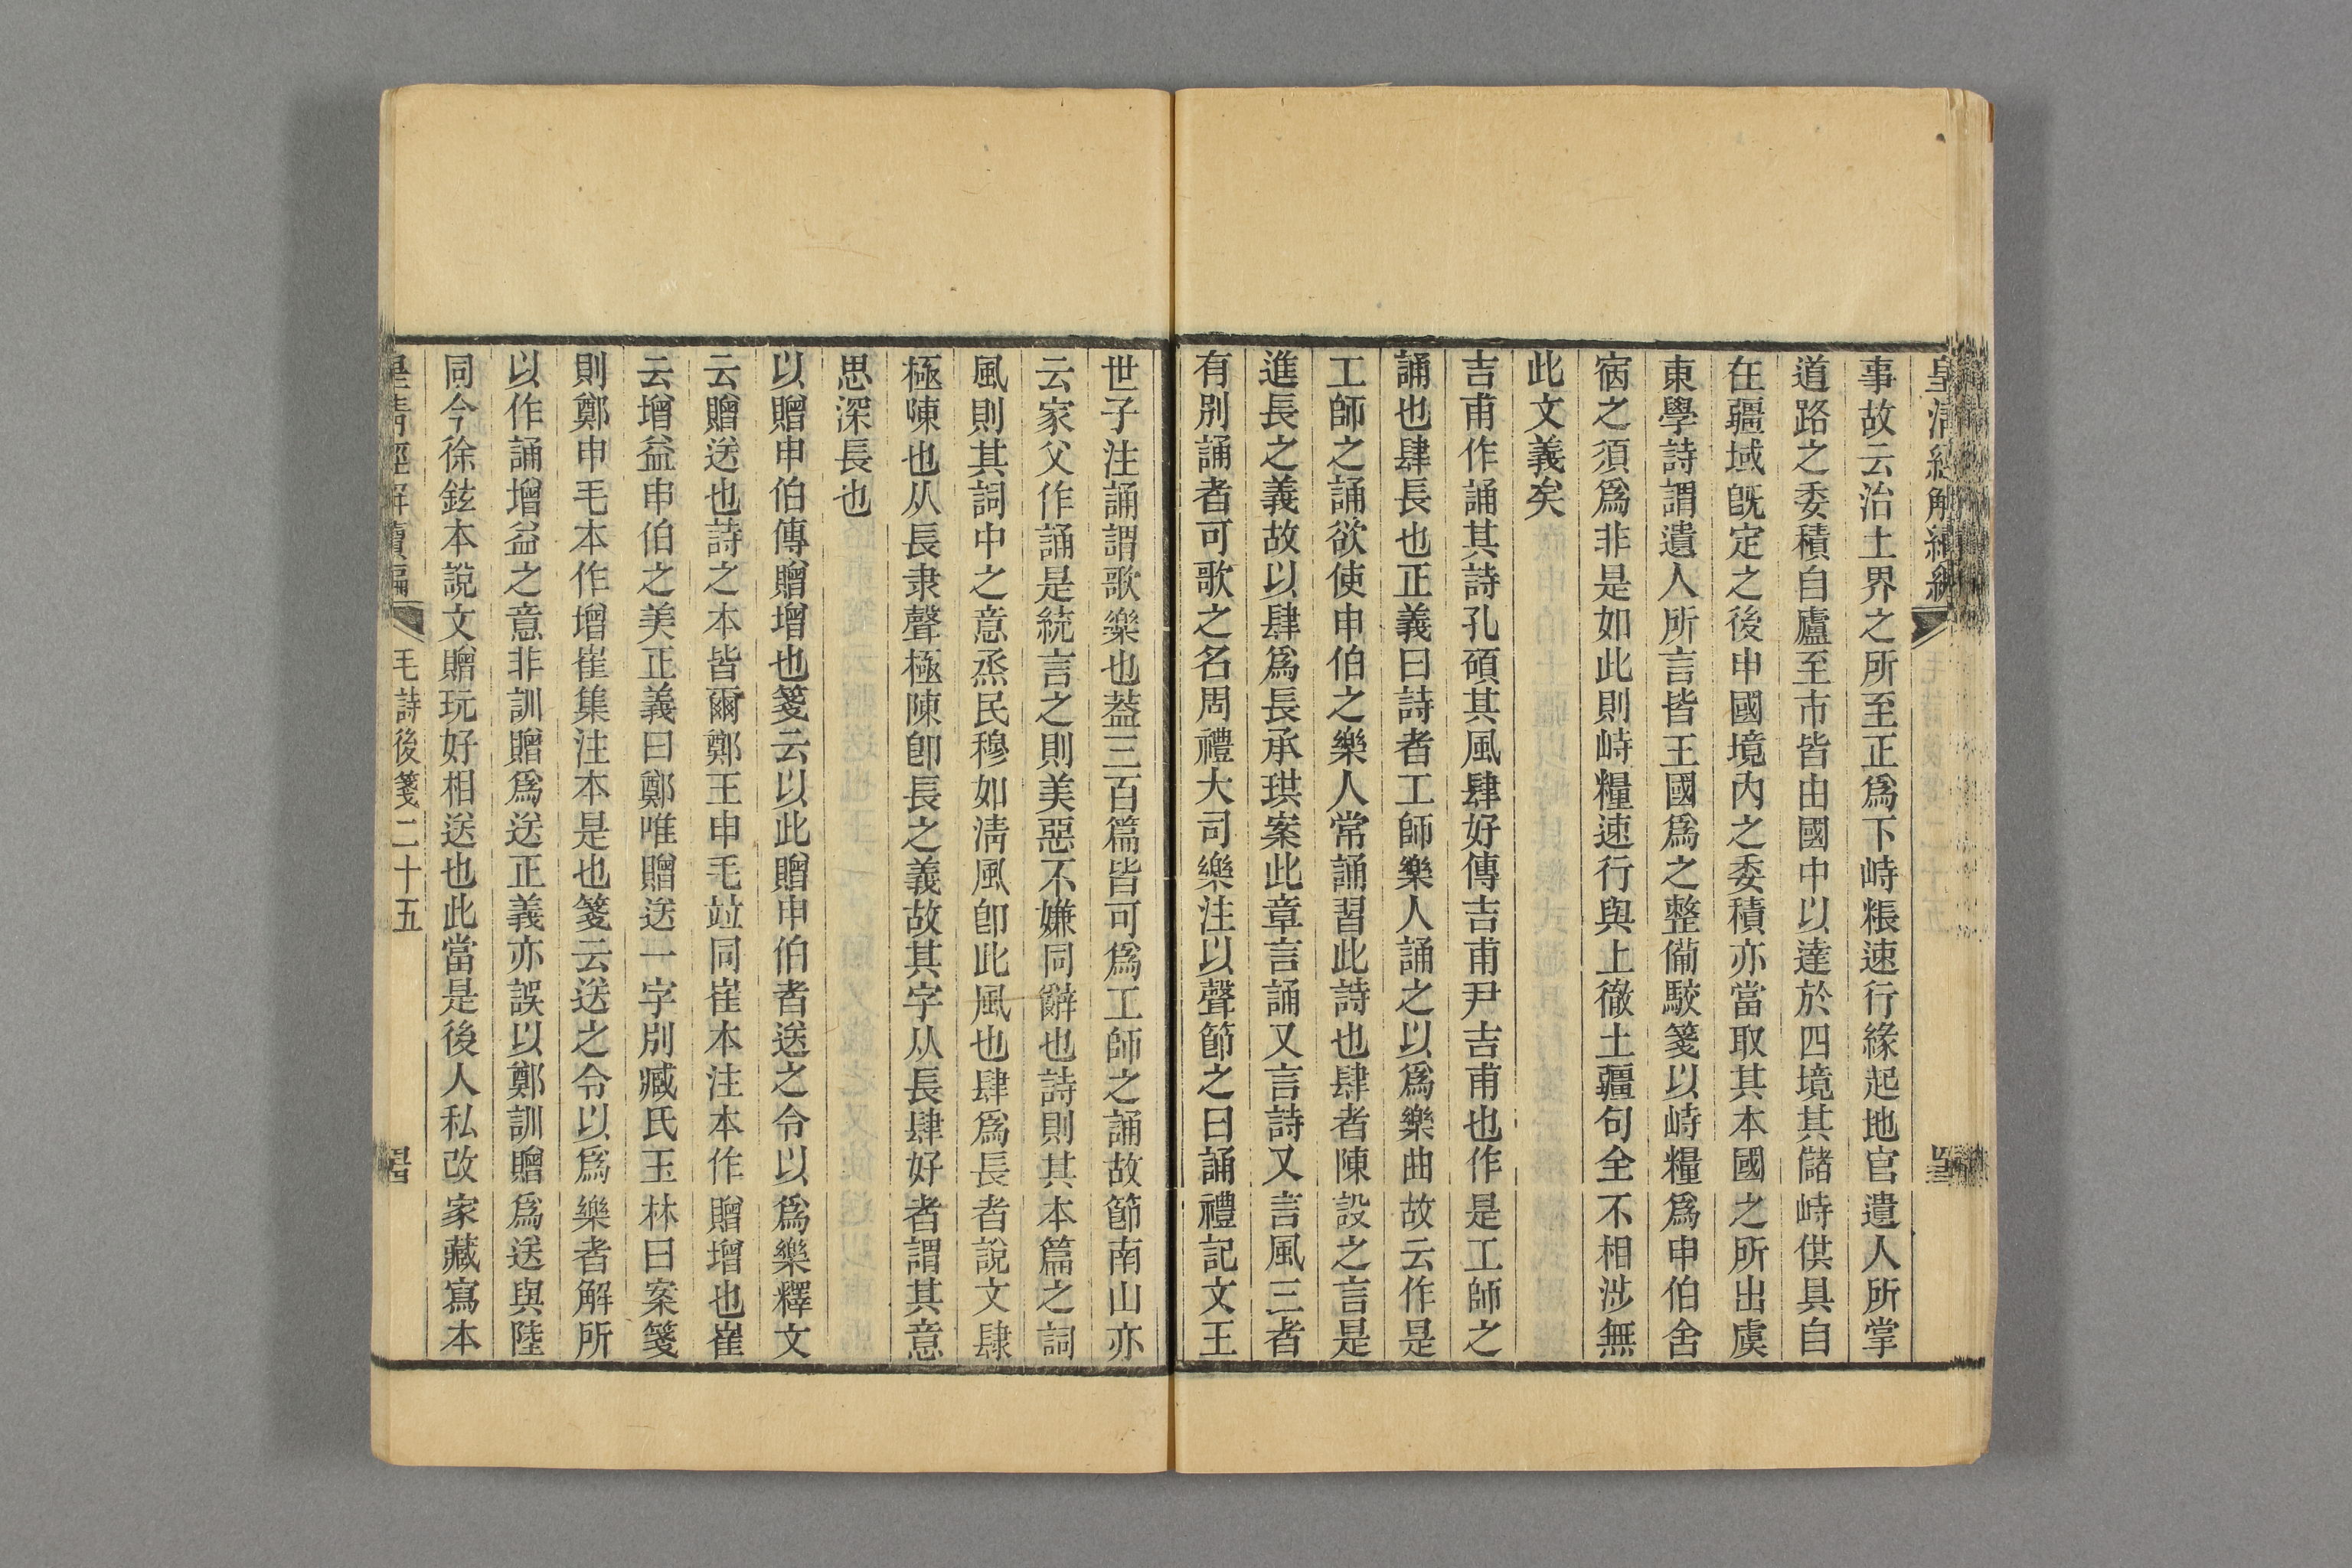 皇清經解續編
事故云治土界之所至正爲下峙粻速行緣起地官遺人所掌
道路之委積自廬至市皆由國中以達於四境其儲峙供具自
在疆域旣定之後申國境內之委積亦當取其本國之所出虞
東學詩謂遺人所言皆王國爲之整備駮箋以峙糧爲申伯舍
宿之須爲非是如此則峙糧速行與上徹土疆句全不相涉無
此文義矣
吉甫作誦其詩孔碩其風肆好傳吉甫尹吉甫也作是工師之
誦也肆長也正義曰詩者工師樂人誦之以爲樂曲故云作是
工師之誦欲使申伯之樂人常誦習此詩也肆者陳設之言是
進長之義故以肆爲長承珙案此章言誦又言詩又言風三者
有別誦者可歌之名周禮大司樂注以聲節之曰誦禮記文王
世子注誦謂歌樂也葢三百篇皆可爲工師之誦故節南山亦
云家父作誦是統言之則美惡不嫌同辭也詩則其本篇之詞
風則其詞中之意烝民穆如淸風卽此風也肆爲長者說文肆
極陳也从長隶聲極陳卽長之義故其字从長肆好者謂其意
思深長也
以贈申伯傳贈增也箋云以此贈申伯者送之令以爲樂釋文
云贈送也詩之本皆爾鄭王申毛竝同崔本注本作贈增也崔
云增益申伯之美正義曰鄭唯贈送一字別臧氏玉林曰案箋
則鄭申毛本作增崔集注本是也箋云送之令以爲樂者解所
以作誦增益之意非訓贈爲送正義亦誤以鄭訓贈爲送與陸
同今徐鉉本說文贈玩好相送也此當是後人私改家藏寫本
皇清經解續編 毛詩後箋二十五